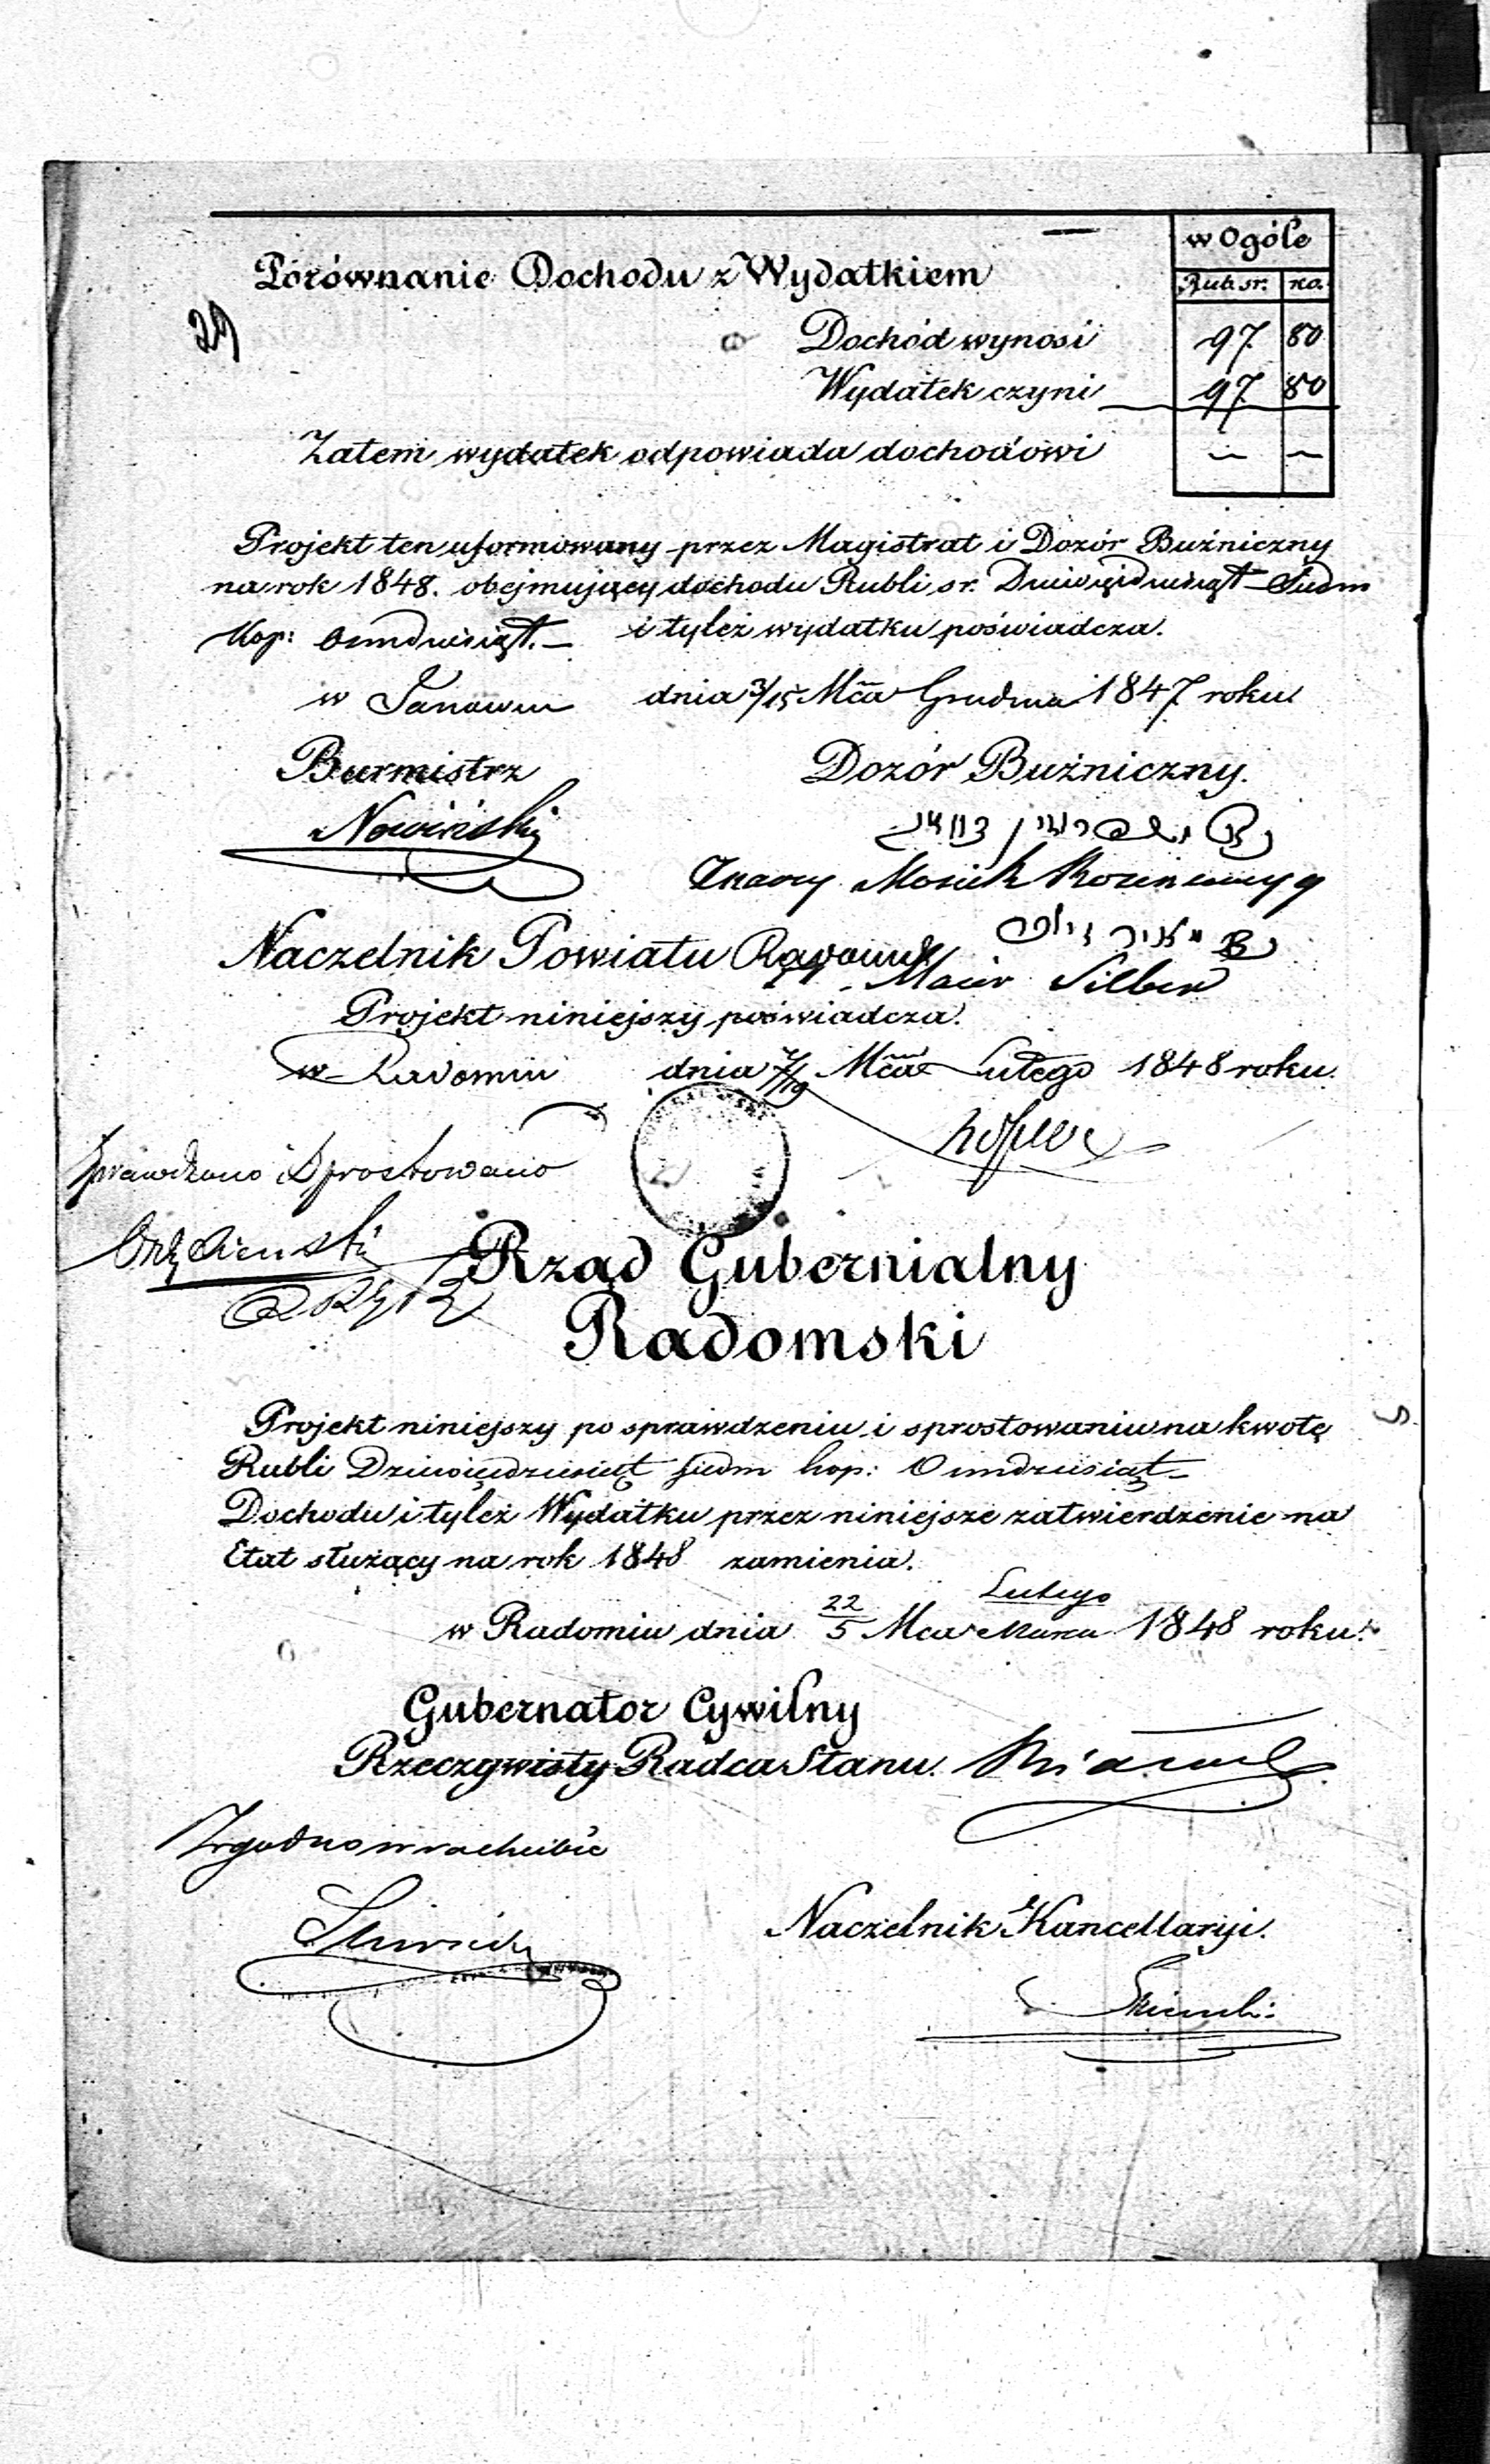 w Ogóle
Porównanie Dochodu z Wydatkiem
Rub. sr. ko.
29
Dochód wynosi 97. 80
Wydatek czyni 97. 80
Zatem wydatek odpowiada dochodowi — —
Projekt ten uformowany przez Magistrat i Dozór Buźniczny
na rok 1848. obejmujący dochodu Rubli sr. Dziewięćdziesiąt Siedm
Kop: Osmdziesiąt. — i tyleż wydatku poświadcza.
w dnia 3/15 Mca Grudnia 1847 roku
Burmistrz Dozór Buźniczny.
Nowiński
Znaczy Mosiek
Naczelnik Powiatu Radomsk
Maier Silber
Projekt niniejszy poświadcza.
w Radomiu dnia 7/19 Mca Lutego 1848 roku.
Sprawdzono i Sprostowano
Rząd Gubernialny
Radomski
Projekt niniejszy po sprawdzeniu i sprostowaniu na kwotę
Rubli Dziewięćdziesiąt siedm kop: Osmdziesiąt —
Dochodu i tyleż Wydatku przez niniejsze zatwierdzenie na
Etat służący na rok 1848 zamienia.
Lutego
w Radomiu dnia 22/5 Mca Marca 1848 roku.
Gubernator Cywilny
Rzeczywisty Radca Stanu.
Zgodno w rachubie
Naczelnik Kancellaryi.